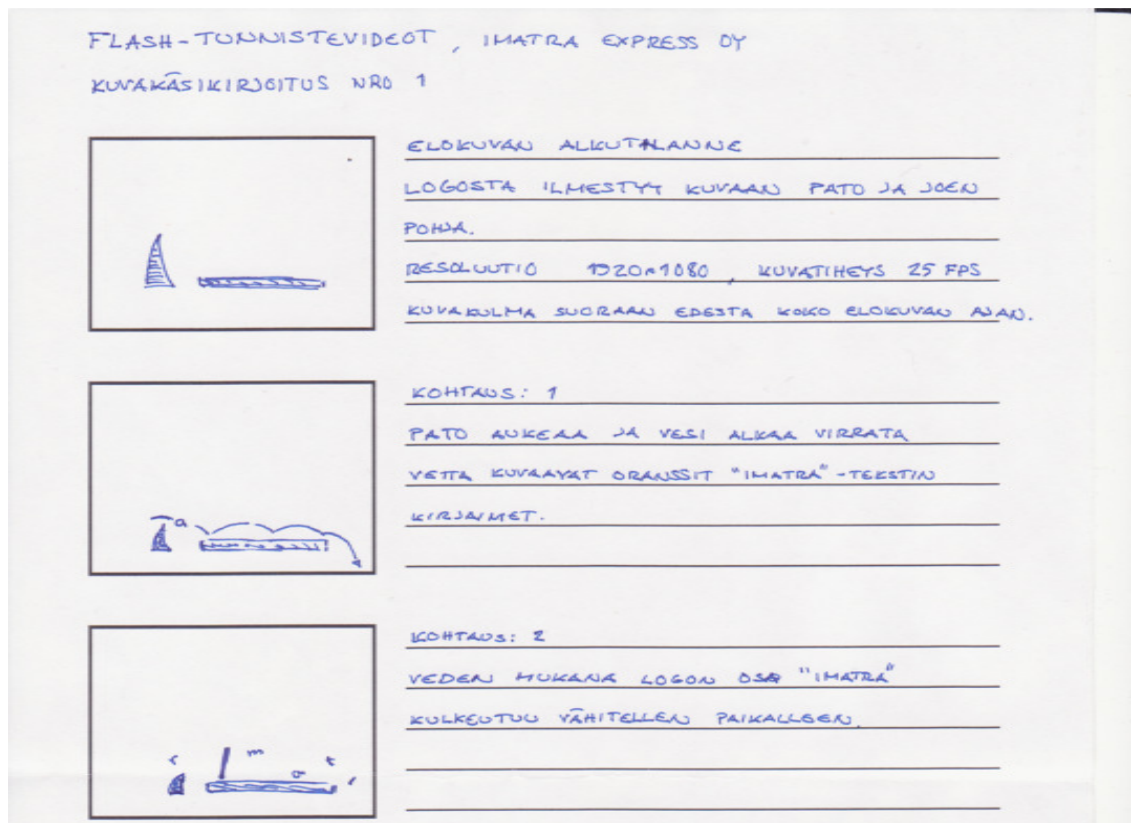 FLASH-TUNNISTEVIDEOT, IMATRA EXPRESS OY
KUVAKÄSIKIRJOITUS NRO 1
ELOKUVAN ALKUTILANNE
LOGOSTA ILMESTYY KUVAAN PATO JA JOEN
POHJA.
RESOLUUTIO 1920×1080, KUVATIHEYS 25 FPS
KUVAKULMA SUORAAN EDESTA KOKO ELOKUVAN AJAN.
KOHTAUS: 1
PATO AUKEAA JA VESI ALKAA VIRRATA
VETTA KUVAAVAT ORANSSIT "IMATRA"-TEKSTIN
KIRJAIMET.
a
KOHTAUS: 2
VEDEN MUKANA LOGON OSA "IMATRA"
KULKEUTUU VÄHITELLEN PAIKALLEEN.
r I m a t